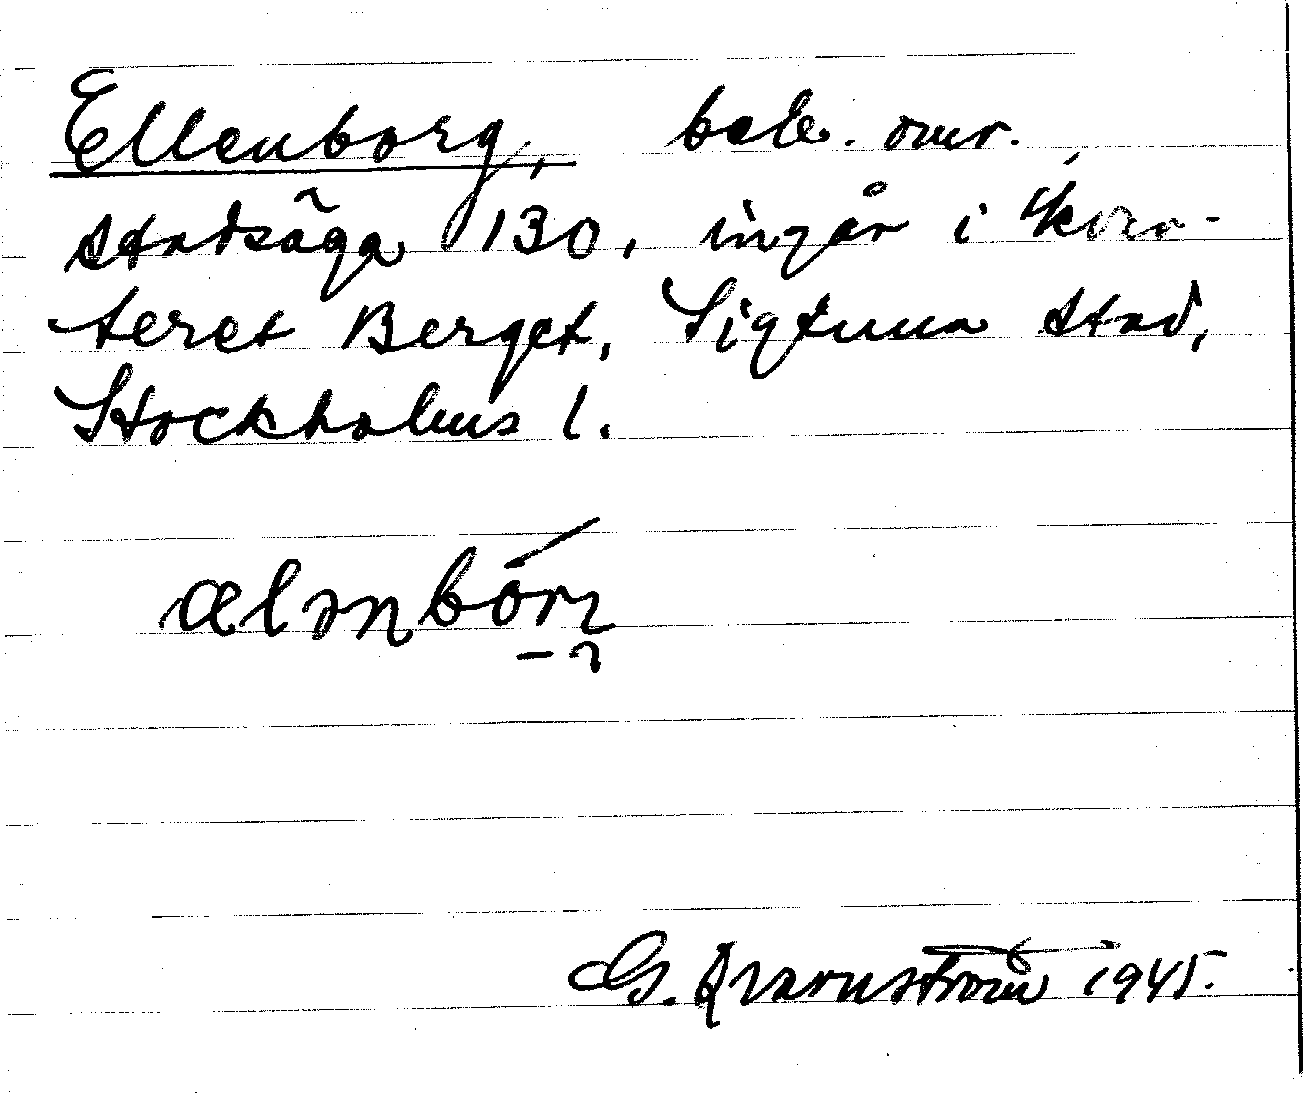 Ellenborg, beb. omr.
stadsäga 130, ingår i kvar-
teret Berget, Sigtuna stad,
Stockholms l.
ælenbórj
G. Qvarnström 1945.